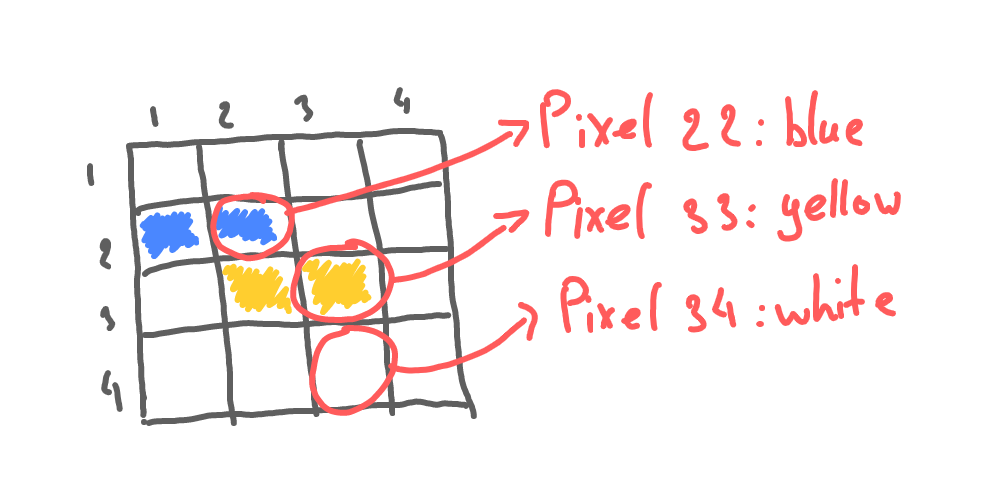 1 2 3 4
1
2
3
4
Pixel 22: blue
Pixel 33: yellow
Pixel 34: white